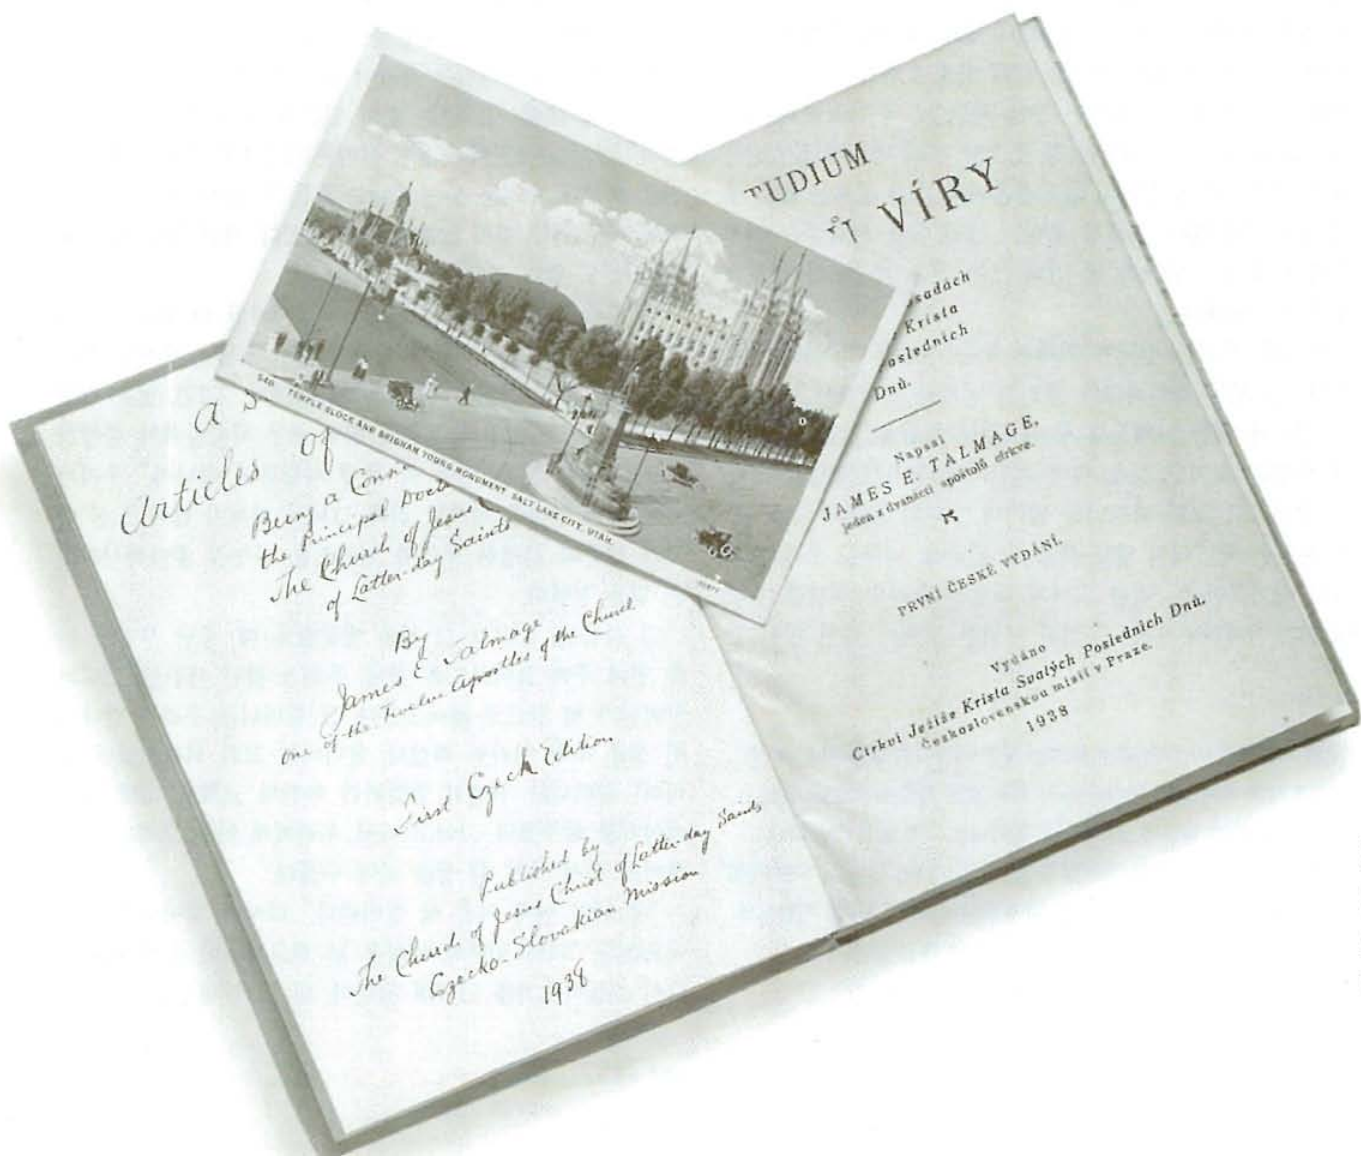 a
Articles of
Being a
the Principal
The Church of Jesus
of Latter-day Saints
By
James E Talmage
one of the Twelve Apostles of the Church
First Czeck Edition
Published by
The Church of Jesus Christ of Latter-day Saints
Czecko-Slovakian Mission
1938
540 TEMPLE BLOCK AND BRIGHAM YOUNG MONUMENT, SALT LAKE CITY, UTAH.
TUDIUM
Ů VÍRY
sadách
Krista
osledních
Dnů.
Napsal
JAMES E. TALMAGE,
jeden z dvanácti apoštolů církve.
PRVNÍ ČESKÉ VYDÁNÍ.
Vydáno
Církví Ježíše Krista Svatých Posledních Dnů.
Československou misií v Praze.
1938